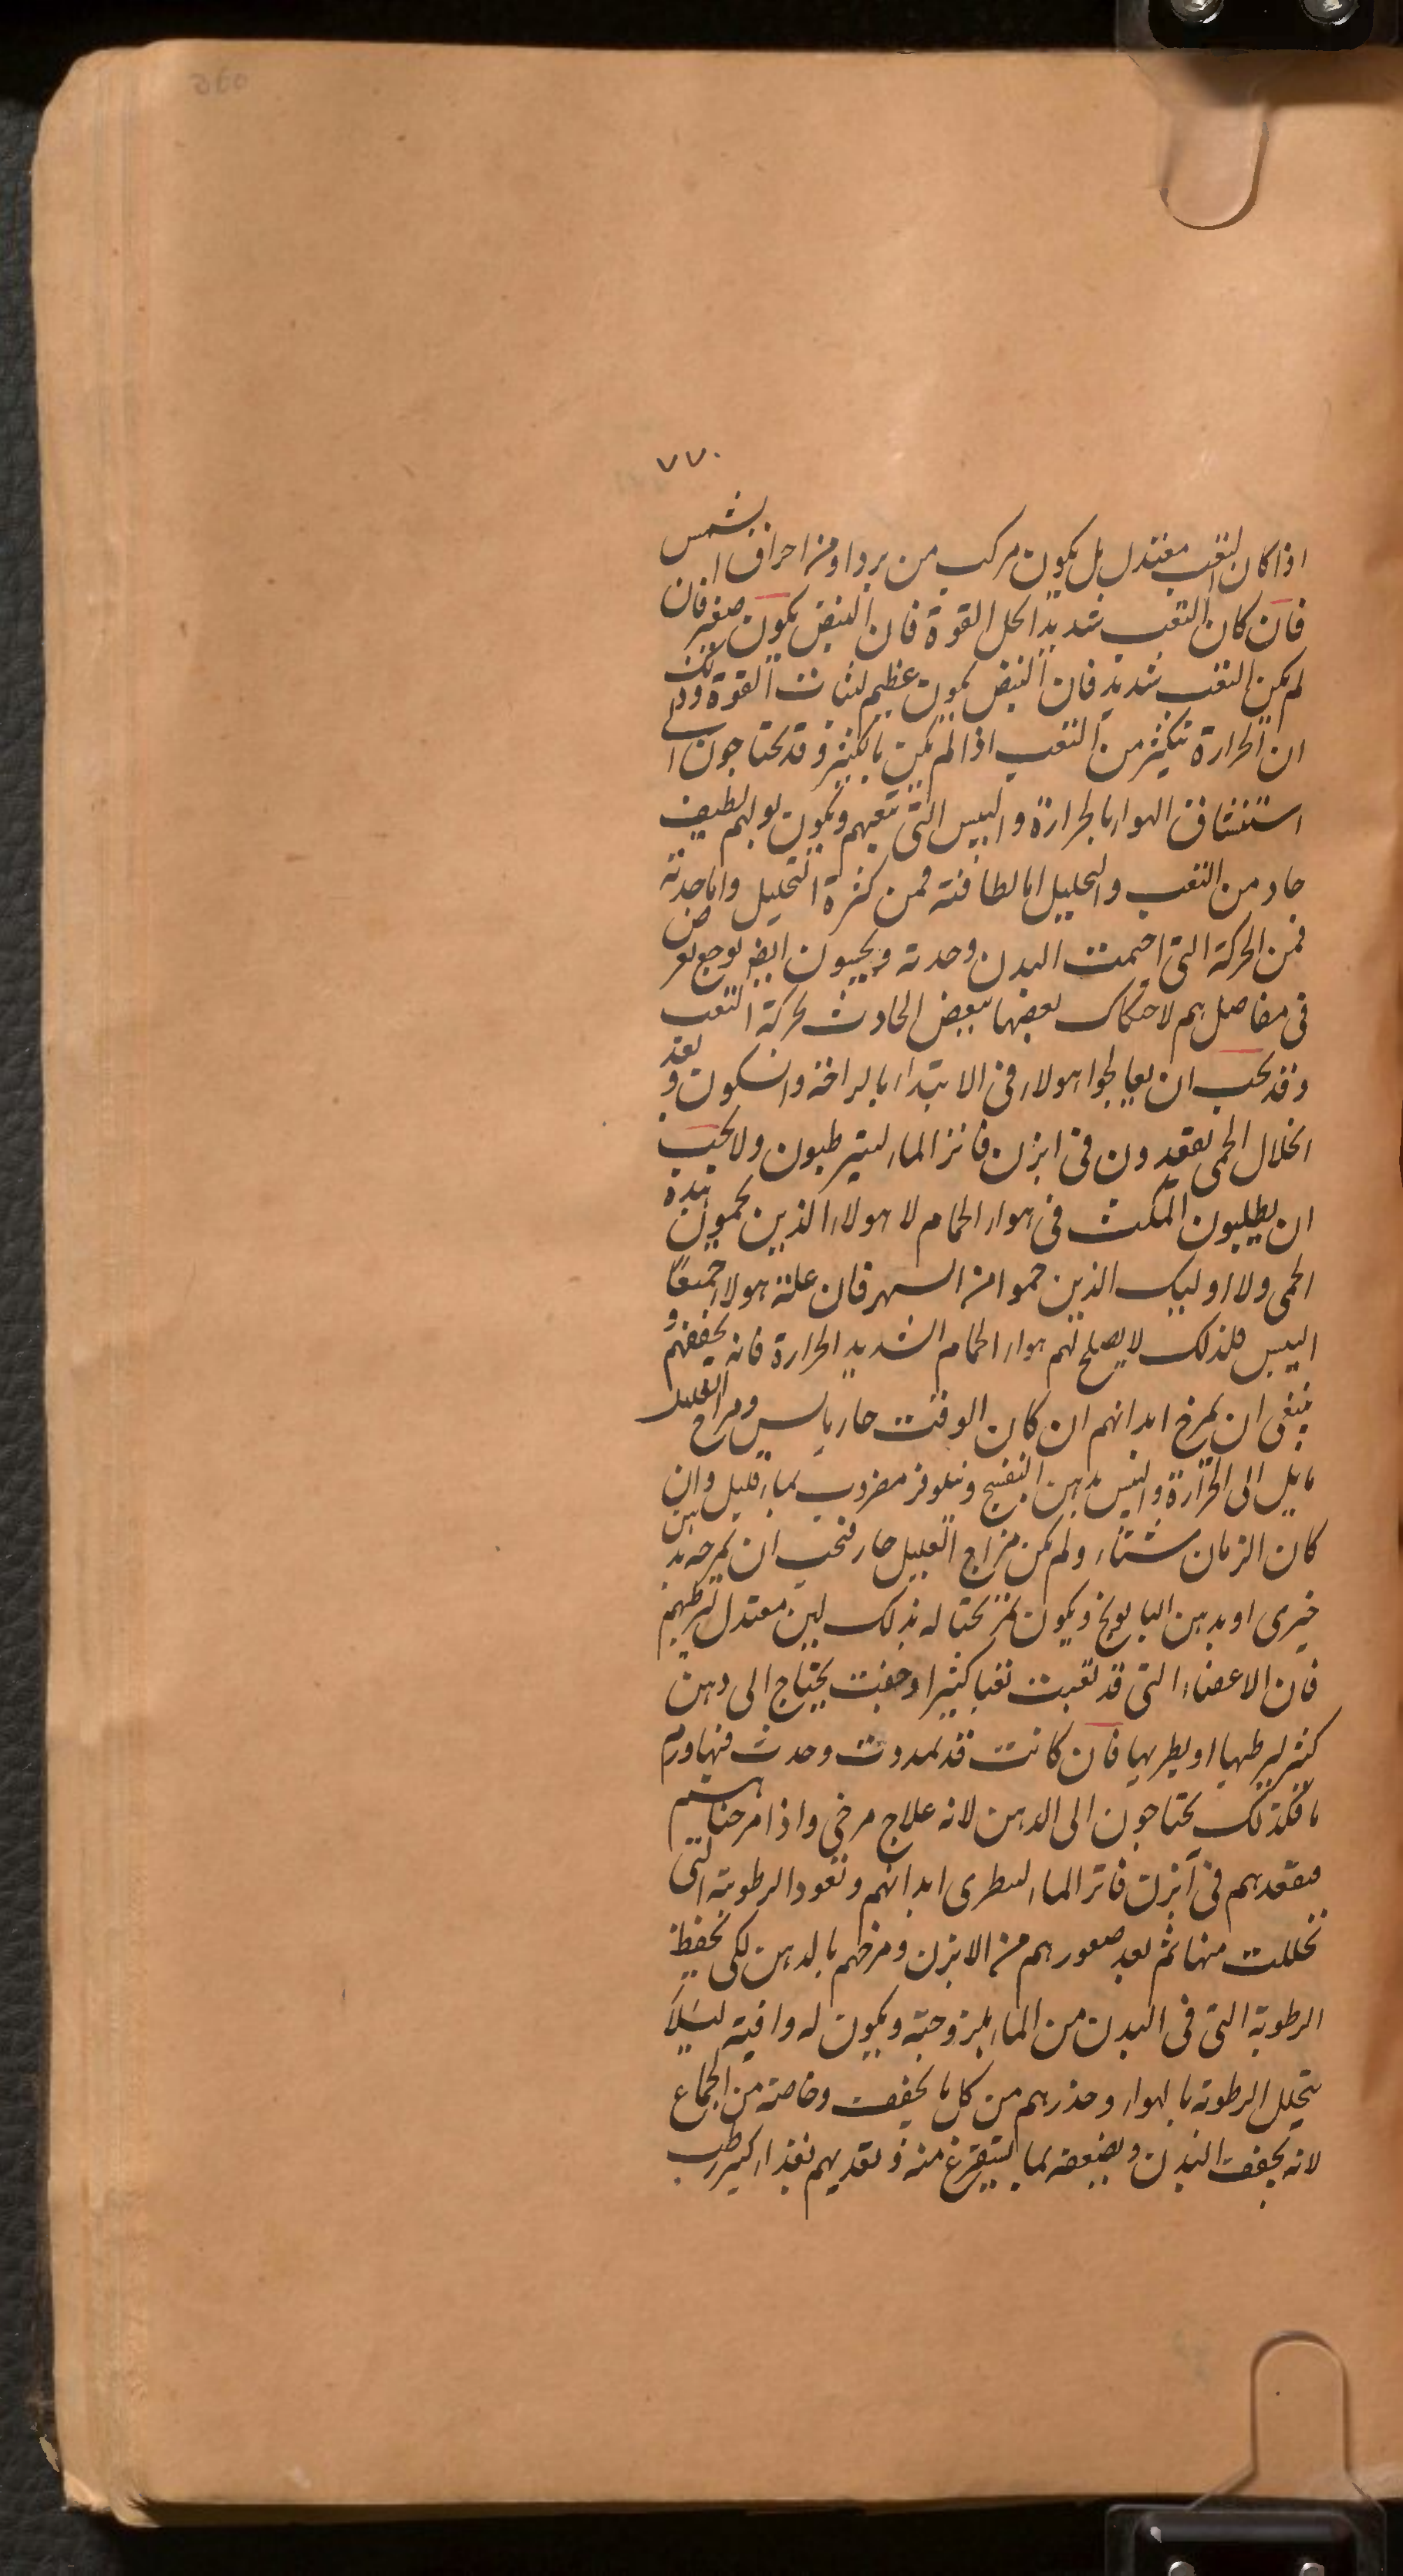 ٧٧٠
اذا كان التعب معتدل بل يكون مركب من برد او من احراق الشمس
فان كان التعب شديدا لحل القوة فان النبض يكون صغير فان
لم يكن التعب شديد فان النبض يكون عظيم لثبات القوة وذلك
ان الحرارة تتكثر من التعب اذا لم يكن بالكثير وقد يحتاجون الى
استنشاق الهواء بالحرارة واليبس التى تتعبهم ويكون بولهم لطيف
حاد من التعب والتحليل اما لطافته فمن كثرة التحليل واما حدته
فمن الحركة التى احمت البدن وحدته ويحسون ايضا بوجع يعرض
فى مفاصلهم لاحتكاك بعضها ببعض الحادث لحركة التعب
وقد يجب ان يعالجوا هولاء فى الابتداء بالراحة والسكون وبعد
انحلال الحمى يقعدون فى ابزن فاتر الماء ليترطبون ولا يجب
ان يطلبون المكث فى هواء الحمام لا هولاء الذين يحمون بهذه
الحمى ولا اوليك الذين حموا من السهر فان علة هولاء جميعا
اليبس فلذلك لا يصلح لهم هواء الحمام الشديد الحرارة فانه يجففهم و
ينبغى ان يمرخ ابدانهم ان كان الوقت حار يابس ومزاج العليل
مايل الى الحرارة واليبس بدهن البنفسج ونيلوفر مضروب بماء قليل وان
كان الزمان شتاء ولم يكن مزاج العليل حار فيجب ان يمرخه بدهن
خيرى او بدهن البابونج ويكون تمريخنا له بذلك لين معتدل ليرطبهم
فان الاعضاء التى قد تعبت تعبا كثيرا وجفت يحتاج الى دهن
كثير ليرطبها او يطريها فان كانت قد تمددت وحدث فيها ورم
ما فكذلك يحتاجون الى الدهن لانه علاج مرخى واذا مرخناهم
فنقعدهم فى آبزن فاتر الماء ليطرى ابدانهم وتعود الرطوبة التى
تحللت منها ثم بعد صعورهم من الابزن ومرخهم بالدهن لكى يحفظ
الرطوبة التى فى البدن من الماء بلزوجته ويكون له واقية ليلا
يتحلل الرطوبة بالهواء وحذرهم من كل ما يجفف وخاصة من الجماع
لانه يجفف البدن ويضعفه لما يستفرغ منه وتغديهم بغذاء كثير رطب